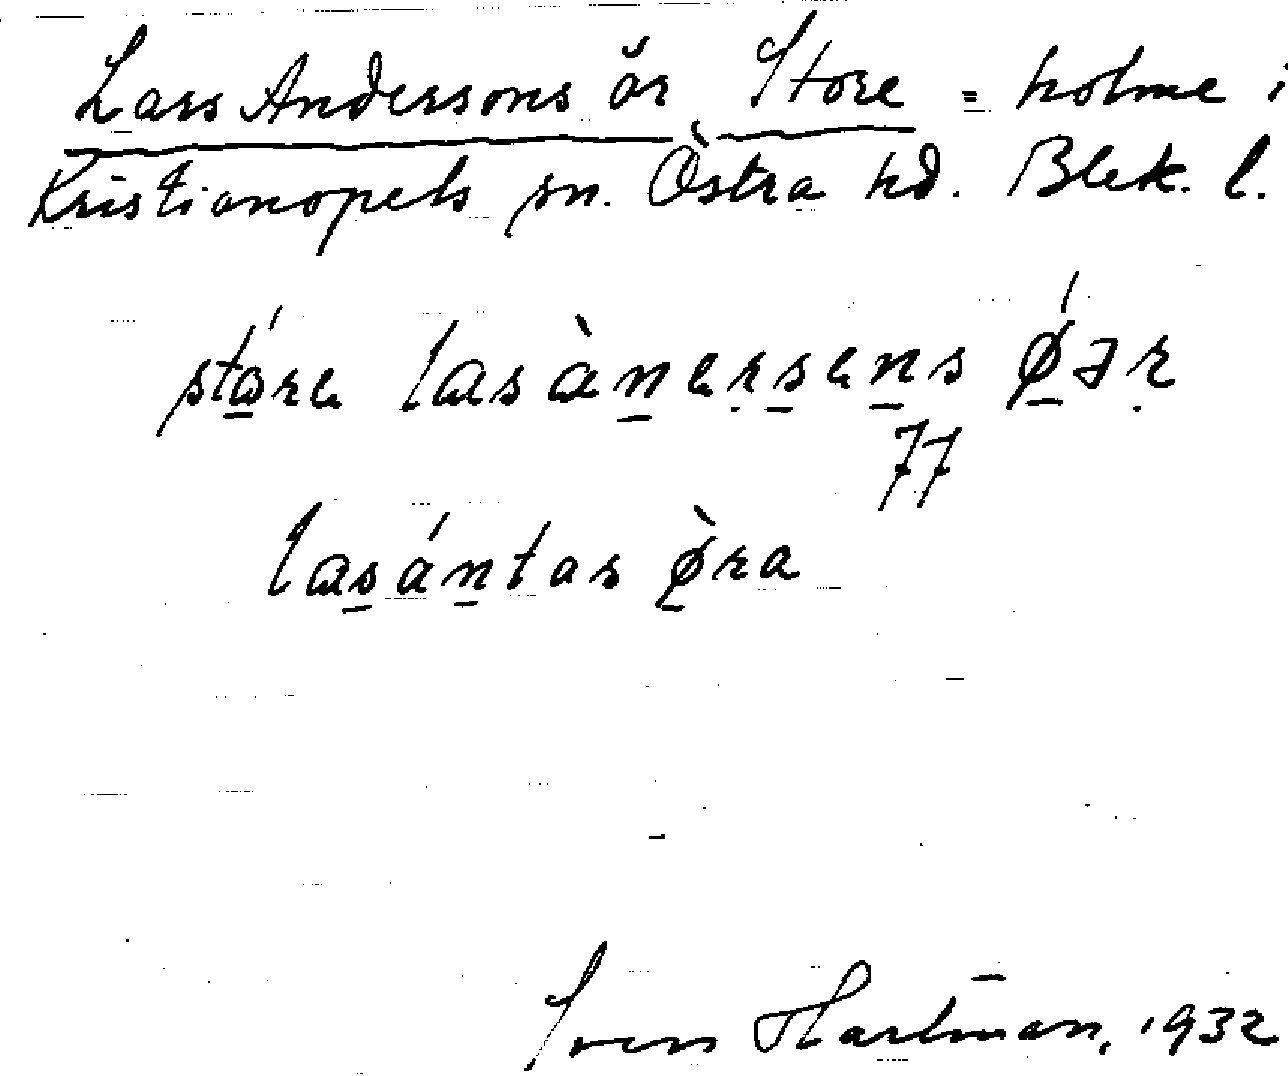 Lars Anderssons ör, Store = holme i
Kristianopels sn. Östra hd. Blek. l.
stó̱re lasàṉeṛs̱eṉs ǿ̱əṛ
77
las̱áṉtas ø̱̀ra
Sven Hartman, 1932